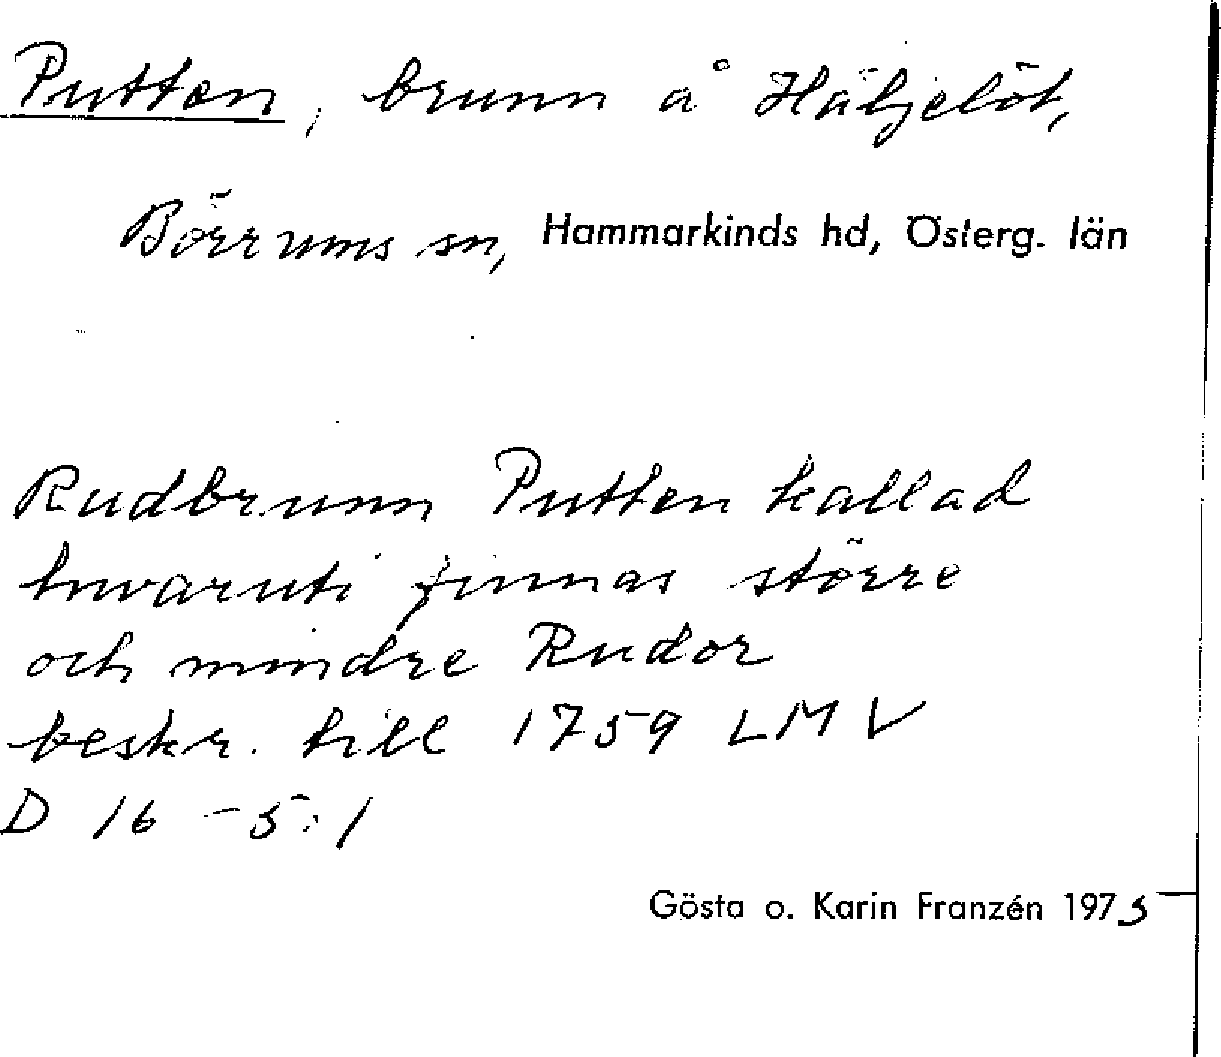 Putten, brunn å Häljelöt,
Börrums sn, Hammarkinds hd, Österg. län
Rudbrunn Putten kallad
hvaruti finnas större
och mindre Rudor
beskr. till 1759 LMV
D 16 - 5:1
Gösta o. Karin Franzén 1975